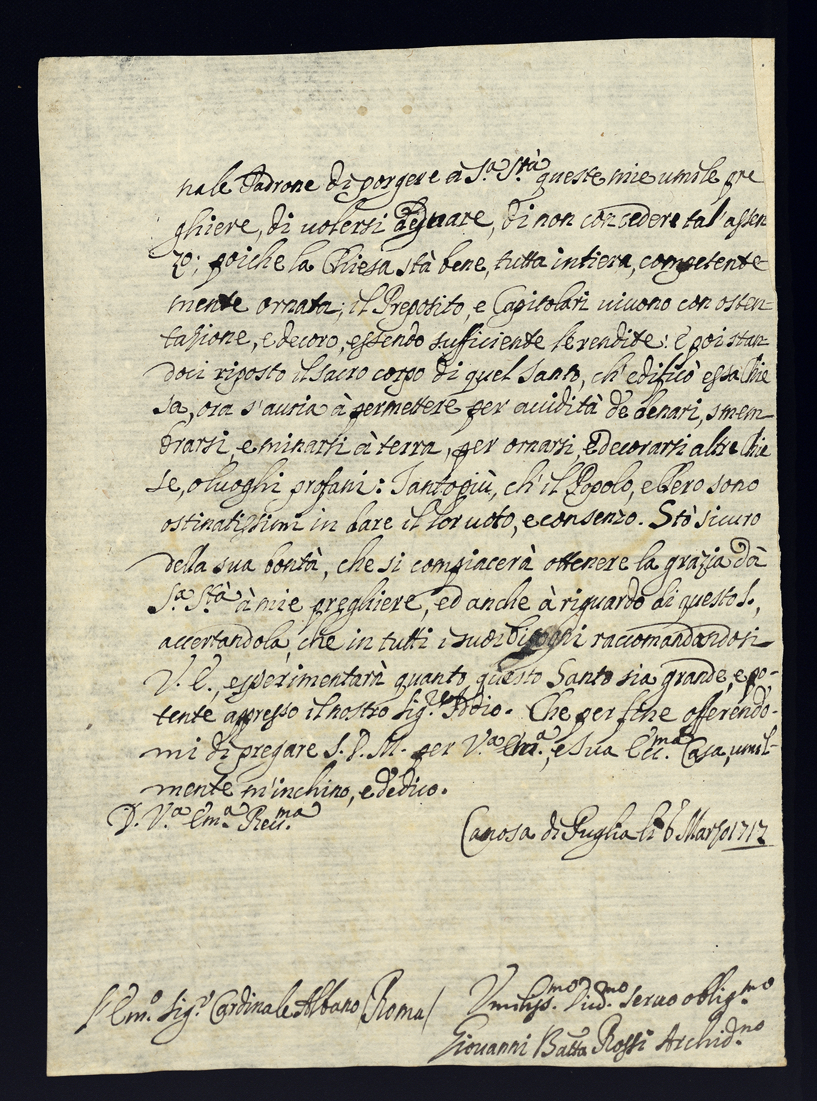 nale Padrone di porgere a S.ª S.tà queste mie umile pre
ghiere, di volersi degnare, di non concedere tal' assen
zo; poiche la Chiesa stà bene, tutta intiera, competente
mente ornata; il Preposito, e Capitolari vivono con osten=
tazione, e decoro, essendo sufficiente le rendite: e poi stan=
doci riposto il sacro corpo di quel Santo, ch' edificò essa Chie
sa, ora s'auria à permettere per avidità de denari, smem=
brarsi, e minarsi à terra, per ornarsi, e decorarsi altre Chie
se, o luoghi profani: Tantopiù, ch' il Popolo, e Clero sono
ostinatissimi in dare il lor voto, e consenzo. Stò sicuro
della sua bontà, che si compiacerà ottenere la grazia dà
S.ª S.tà à mie preghiere, ed anche à riguardo di questo S.,
accertandola, che in tutti i suoi bisogni raccomandandosi
V. E., esperimentarà quanto questo Santo sia grande, e po-
tente appresso il nostro Sig.re Iddio. Che per fine offerendo-
mi di pregare S. D. M. per V.ª Em.ª, e sua Ecc.ma Casa, umil-
mente m'inchino, e dedico.
D. V.ª Em.ª Reu.ma
Canosa di Puglia li 6 Marzo 1717
Em.º Sig.r Cardinale Albano (Roma)
Umiliss.mo Diu.mo seruo oblig.mo
Giovanni Batta Rossi Archid.no